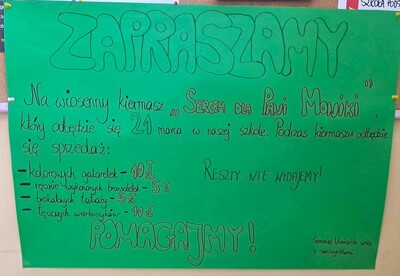 SZKOŁA PODS
ZAPRASZAMY
Na wiosenny kiermasz „Sercem dla Pani Moniki",
który odbędzie się 21 marca w naszej szkole. Podczas kiermaszu odbędzie
się sprzedaż:
- kolorowych galaretek - 10 zł
- ręcznie wykonanych bransoletek - 5 zł
- brokatowych tatuaży - 5 zł
- tęczowych woreczków - 10 zł
RESZTY NIE WYDAJEMY!
POMAGAJMY!
Samorząd Uczniowski wraz
z